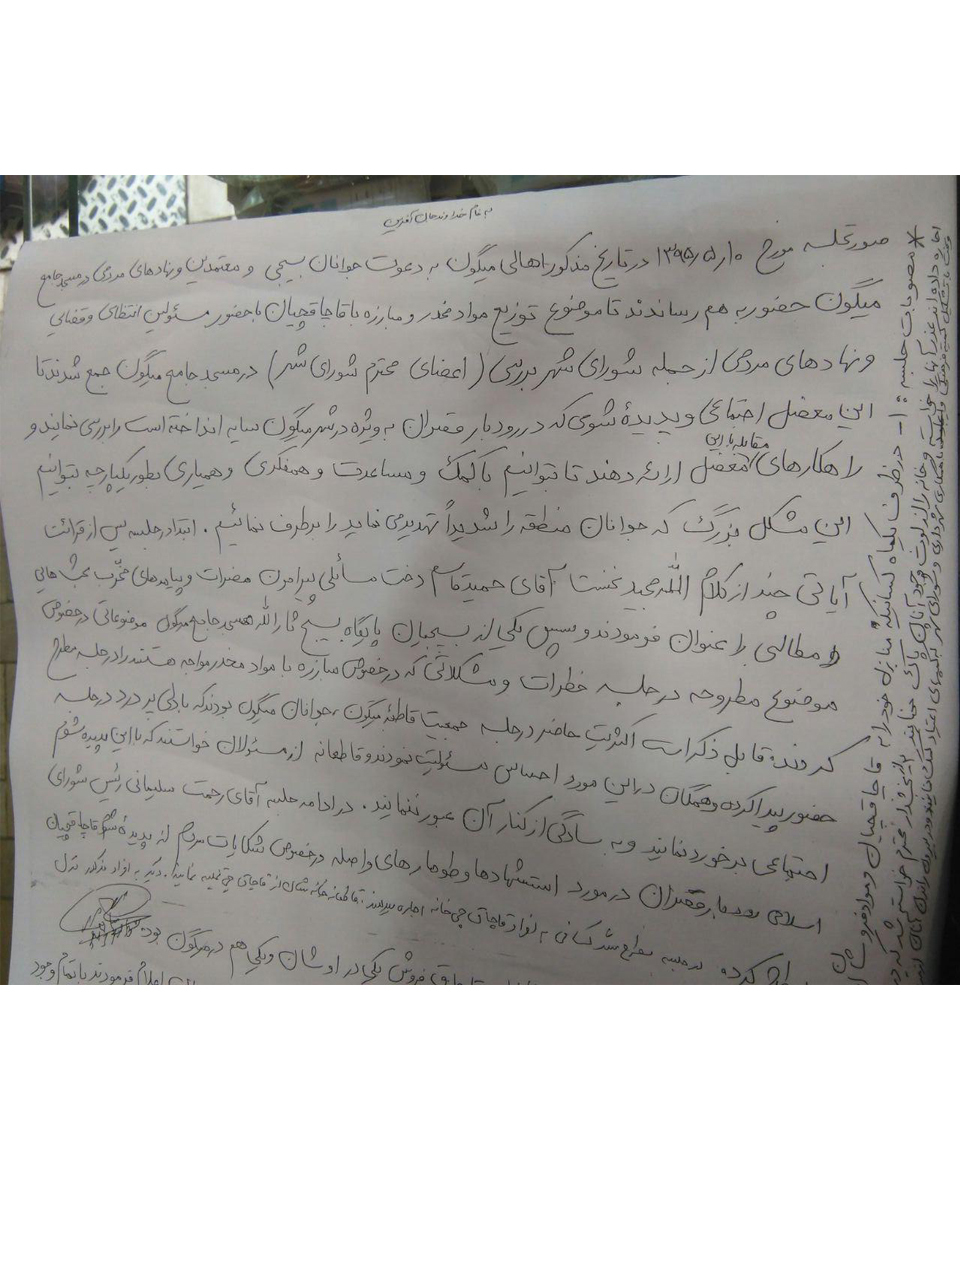 به نام خداوند جان آفرین
صورتجلسه مورخ ۱۳۹۵/۵/۱۰ در تاریخ مذکور اهالی میگون به دعوت جوانان بسیجی و معتمدین و نهادهای مردمی در مسجد جامع
میگون حضور به هم رساندند تا موضوع توزیع مواد مخدر و مبارزه با قاچاقچیان با حضور مسئولین انتظامی و قضایی
و نهادهای مردمی از جمله شورای شهر بررسی (اعضای محترم شورای شهر) در مسجد جامع میگون جمع شدند تا
این معضل اجتماعی و پدیدهٔ شومی که در رودبار قصران به ویژه در شهر میگون سایه انداخته است را بررسی نمایند و
راهکارهای مقابله با این معضل ارائه دهند تا بتوانیم با کمک و مساعدت و همفکری و همیاری بطور یکپارچه بتوانیم
این مشکل بزرگ که جوانان منطقه را شدیداً تهدید می نماید را برطرف نمائیم. ابتدا در جلسه پس از قرائت
آیاتی چند از کلام الله مجید نخست آقای حمید قاسم دخت مسائلی پیرامون مضرات و پیامدهای مخرّب بحث هایی
و مطالبی را عنوان فرمودند و سپس یکی از بسیجیان پایگاه بسیج ثارالله مسجد جامع میگون موضوعاتی در خصوص
موضوع مطروحه در جلسه خطرات و مشکلاتی که در خصوص مبارزه با مواد مخدر مواجه هستند را در جلسه مطرح
کردند. قابل ذکر است اکثریت حاضر در جلسه جمعیت قاطبهٔ میگون، جوانان میگون بودند که با دلی پر درد در جلسه
حضور پیدا کرده و همگان در این مورد احساس مسئولیت نمودند و قاطعانه از مسئولان خواستند که با این پدیده شوم
اجتماعی برخورد نمایند و به سادگی از کنار آن عبور ننمایند. در ادامه جلسه آقای رحمت سلیمانی رئیس شورای
اسلامی رودبار قصران در مورد استشهادها و طومارهای واصله در خصوص شکایات مردم از پدیدهٔ شوم قاچاقچیان
کرده در جلسه مطرح شد کسانی به افراد قاچاقچی خانه اجاره میدهند. قاطعانه خانه شان از قاچاقچی تخلیه نمایند. دیگر به افراد
فروش یکی در اوشان و یکی هم در میگون بود
اعلام فرمودند با تمام وجود
* مصوبات جلسه: ۱- در ظرف یکماه کسانیکه منازل خود را به قاچاقچیان و مواد فروشان
اجاره داده اند عذر آنها را بخواهند و خانه را از لوث وجود آنان پاک نمایند ۲-